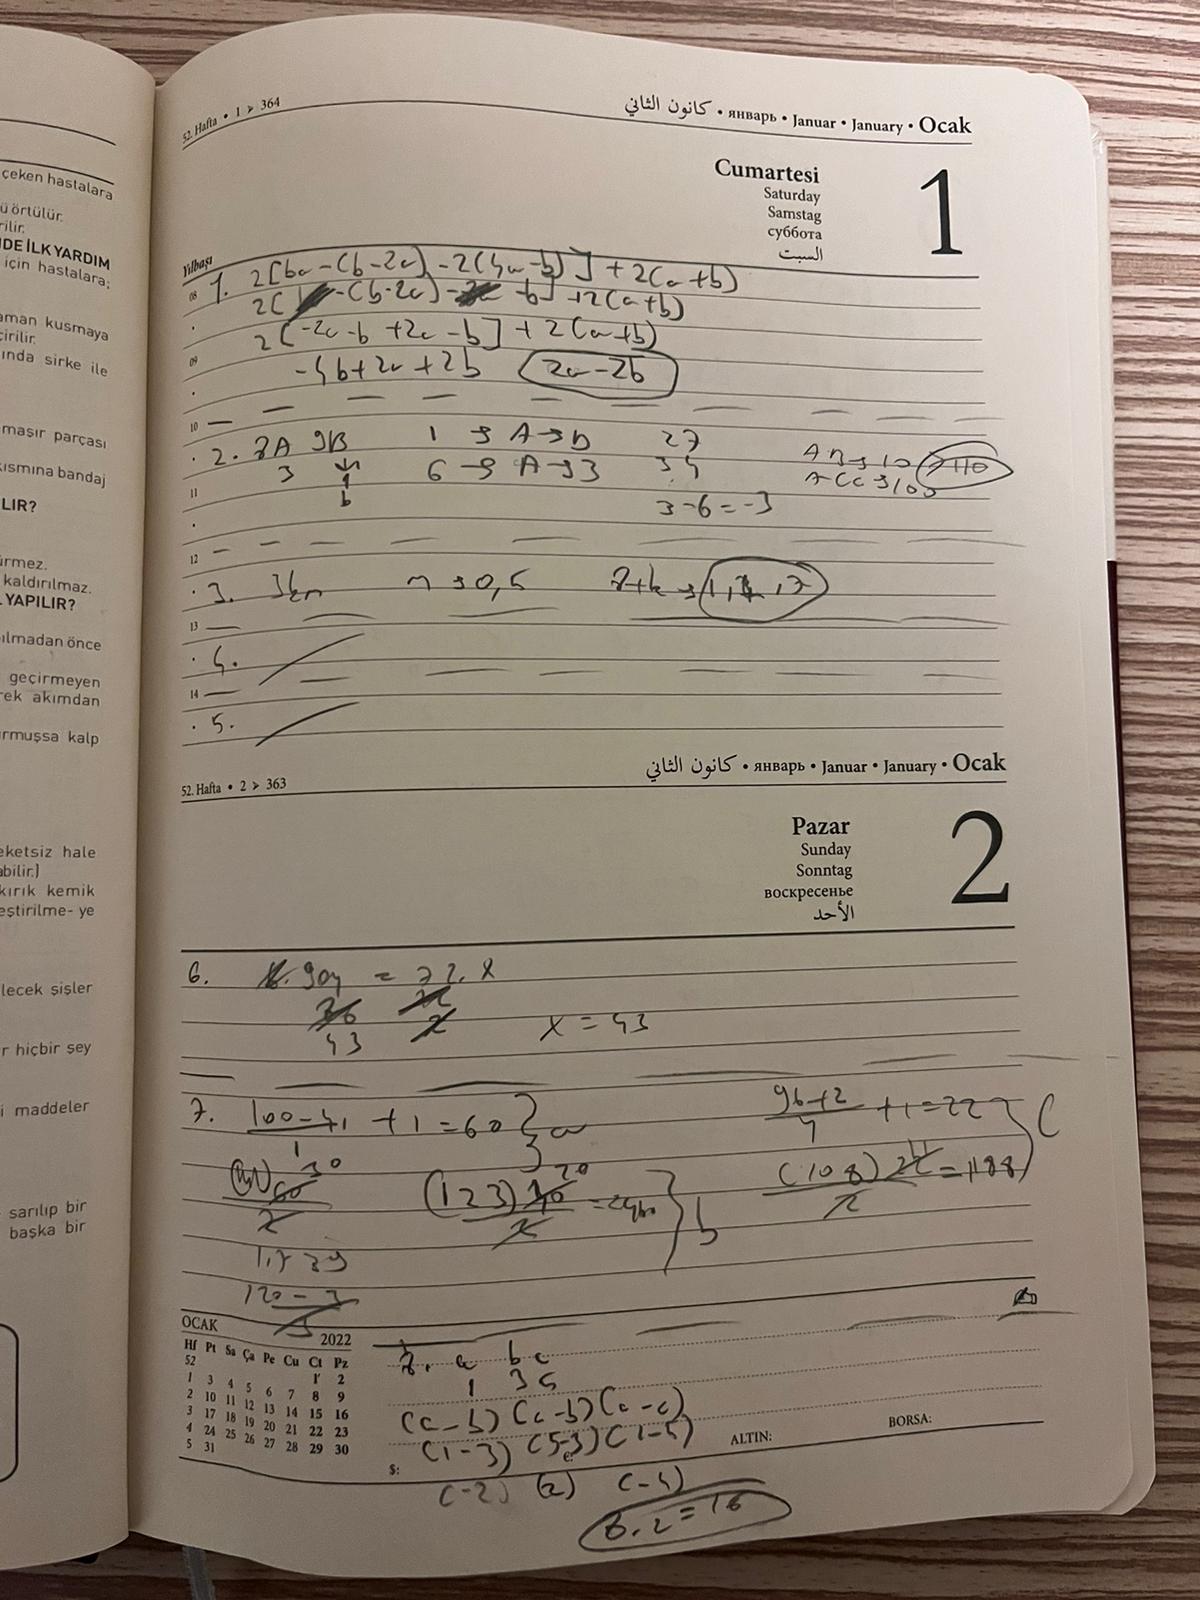 çeken hastalara
ü örtülür.
rilir.
DE İLK YARDIM
için hastalara;
aman kusmaya
çirilir.
ında sirke ile
maşır parçası
kısmına bandaj
LIR?
ez.
kaldırılmaz.
YAPILIR?
ılmadan önce
geçirmeyen
rek akımdan
urmuşsa kalp
eketsiz hale
abilir.)
kırık kemik
eştirilme- ye
lecek şişler
r hiçbir şey
i maddeler
sarılıp bir
başka bir
52. Hafta • 1 ➢ 364
كانون الثاني • январь • Januar • January • Ocak
Cumartesi
Saturday
Samstag
суббота
السبت
1
Yılbaşı
08 1. 2[6a-(b-2a)-2(4a-b)]+2(a+b)
-(b-2a)- -b]+2(a+b)
09 2[-2a-b+2a-b]+2(a+b)
-4b+2a+2b 2a-2b
10
2. 7A 9B 1 → A→ 27
11 3 6 → A→3 34
b 3-6=-3
12
3. n → 0,5
13
4.
14
5.
52. Hafta • 2 ➢ 363
كانون الثاني • январь • Januar • January • Ocak
Pazar
Sunday
Sonntag
воскресенье
الأحد
2
6. = 72.x
43 x = 43
7. 100-41 + 1 = 60 } a
96+2 + 1 = 22
4
(123) 40 20 } b
(108) 22 11 = 1188 } c
2
120-3
OCAK 2022
Hf Pt Sa Ça Pe Cu Ct Pz
52 1 2
1 3 4 5 6 7 8 9
2 10 11 12 13 14 15 16
3 17 18 19 20 21 22 23
4 24 25 26 27 28 29 30
5 31
a b c
1 3 5
(a-b) (c-b) (a-c)
(1-3) (5-3) (1-5)
$: €: ALTIN: BORSA:
(-2) (2) (-4)
8.2=16